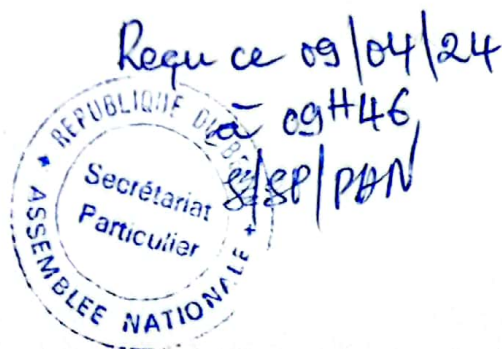 Reçu ce 09/04/24
à 09H46
S/SP/PAN
REPUBLIQUE DU BE
Secrétariat
Particulier
ASSEMBLEE NATIONALE